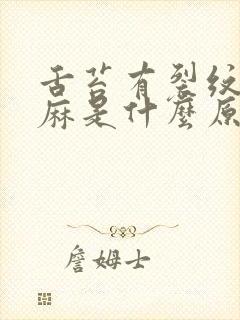 舌苔有裂纹
麻是什麼原
詹姆士